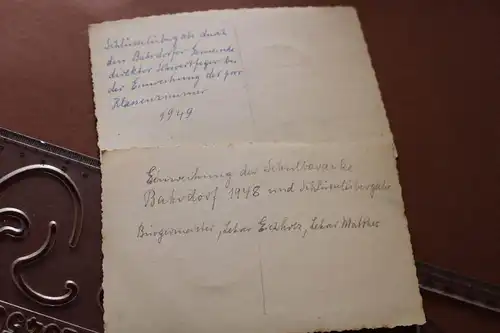 Schlüsselübergabe durch
den Bahrdorfer Gemeinde
direktor Schwertfeger bei
der Einweihung der
Klassenzimmer
1949
Einweihung der Schulbaracke
Bahrdorf 1948 und Schlüsselübergabe
Bürgermeister, Lehrer Lehrer